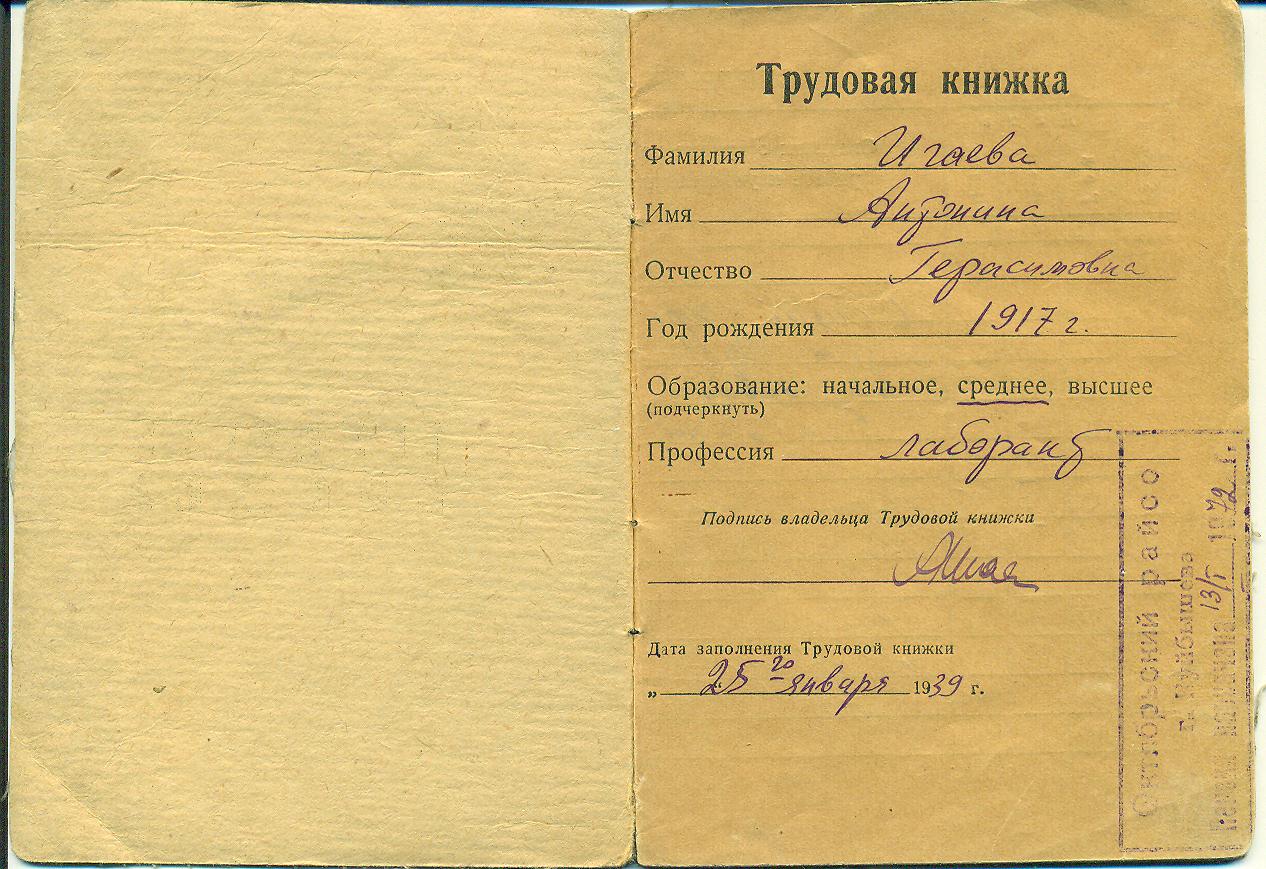 Трудовая книжка
Фамилия Игаева
Имя Антонина
Отчество Герасимовна
Год рождения 1917 г.
Образование: начальное, среднее, высшее
(подчеркнуть)
Профессия лаборант
Подпись владельца Трудовой книжки
Дата заполнения Трудовой книжки
„ 25 го января 1939 г.
Октябрьский райсо
г. Куйбышева
Пенсия назначена 13/I 1972 г.